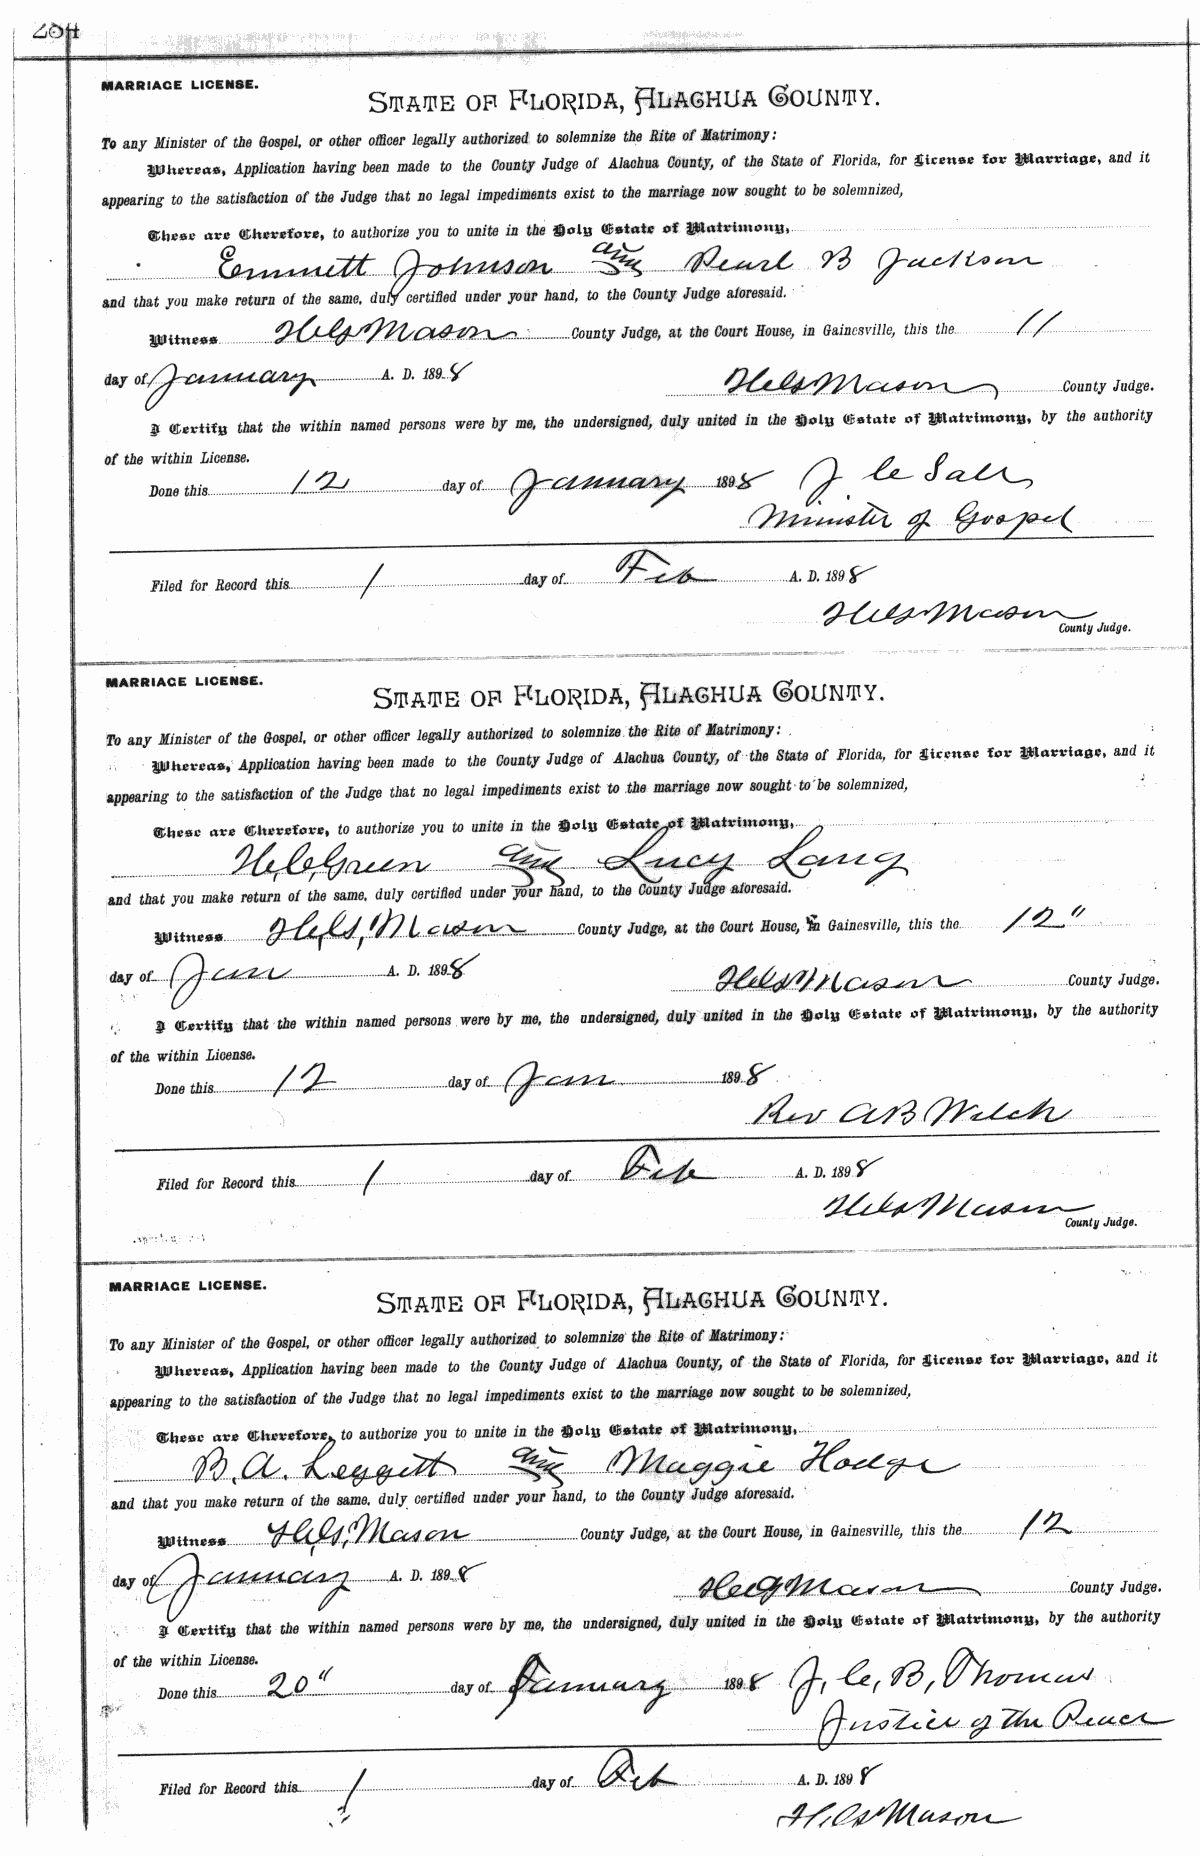 284
MARRIAGE LICENSE.
STATE OF FLORIDA, ALACHUA COUNTY.
To any Minister of the Gospel, or other officer legally authorized to solemnize the Rite of Matrimony:
Whereas, Application having been made to the County Judge of Alachua County, of the State of Florida, for License for Marriage, and it
appearing to the satisfaction of the Judge that no legal impediments exist to the marriage now sought to be solemnized,
These are Therefore, to authorize you to unite in the Holy Estate of Matrimony,
Emmett Johnson and Pearl B Jackson
and that you make return of the same, duly certified under your hand, to the County Judge aforesaid.
Witness H.C.S. Mason County Judge, at the Court House, in Gainesville, this the 11
day of January A. D. 1898 H.C.S. Mason County Judge.
I Certify that the within named persons were by me, the undersigned, duly united in the Holy Estate of Matrimony, by the authority
of the within License.
Done this 12 day of January 1898 J C
Minister of Gospel
Filed for Record this 1 day of Feb A. D. 1898
H.C.S. Mason
County Judge.
MARRIAGE LICENSE.
STATE OF FLORIDA, ALACHUA COUNTY.
To any Minister of the Gospel, or other officer legally authorized to solemnize the Rite of Matrimony:
Whereas, Application having been made to the County Judge of Alachua County, of the State of Florida, for License for Marriage, and it
appearing to the satisfaction of the Judge that no legal impediments exist to the marriage now sought to be solemnized,
These are Therefore, to authorize you to unite in the Holy Estate of Matrimony,
H.C. Green and Lucy Lang
and that you make return of the same, duly certified under your hand, to the County Judge aforesaid.
Witness H.C.S. Mason County Judge, at the Court House, in Gainesville, this the 12"
day of Jan A. D. 1898 H.C.S. Mason County Judge.
I Certify that the within named persons were by me, the undersigned, duly united in the Holy Estate of Matrimony, by the authority
of the within License.
Done this 12 day of Jan 1898
Rev A B Welch
Filed for Record this 1 day of Feb A. D. 1898
H.C.S. Mason
County Judge.
MARRIAGE LICENSE.
STATE OF FLORIDA, ALACHUA COUNTY.
To any Minister of the Gospel, or other officer legally authorized to solemnize the Rite of Matrimony:
Whereas, Application having been made to the County Judge of Alachua County, of the State of Florida, for License for Marriage, and it
appearing to the satisfaction of the Judge that no legal impediments exist to the marriage now sought to be solemnized,
These are Therefore, to authorize you to unite in the Holy Estate of Matrimony,
B. A. Leggett and Maggie Hodge
and that you make return of the same, duly certified under your hand, to the County Judge aforesaid.
Witness H.C.S. Mason County Judge, at the Court House, in Gainesville, this the 12
day of January A. D. 1898 H.C.S. Mason County Judge.
I Certify that the within named persons were by me, the undersigned, duly united in the Holy Estate of Matrimony, by the authority
of the within License.
Done this 20" day of January 1898 J, C, B, Thomas
Justice of the Peace
Filed for Record this 1 day of Feb A. D. 1898
H.C.S. Mason